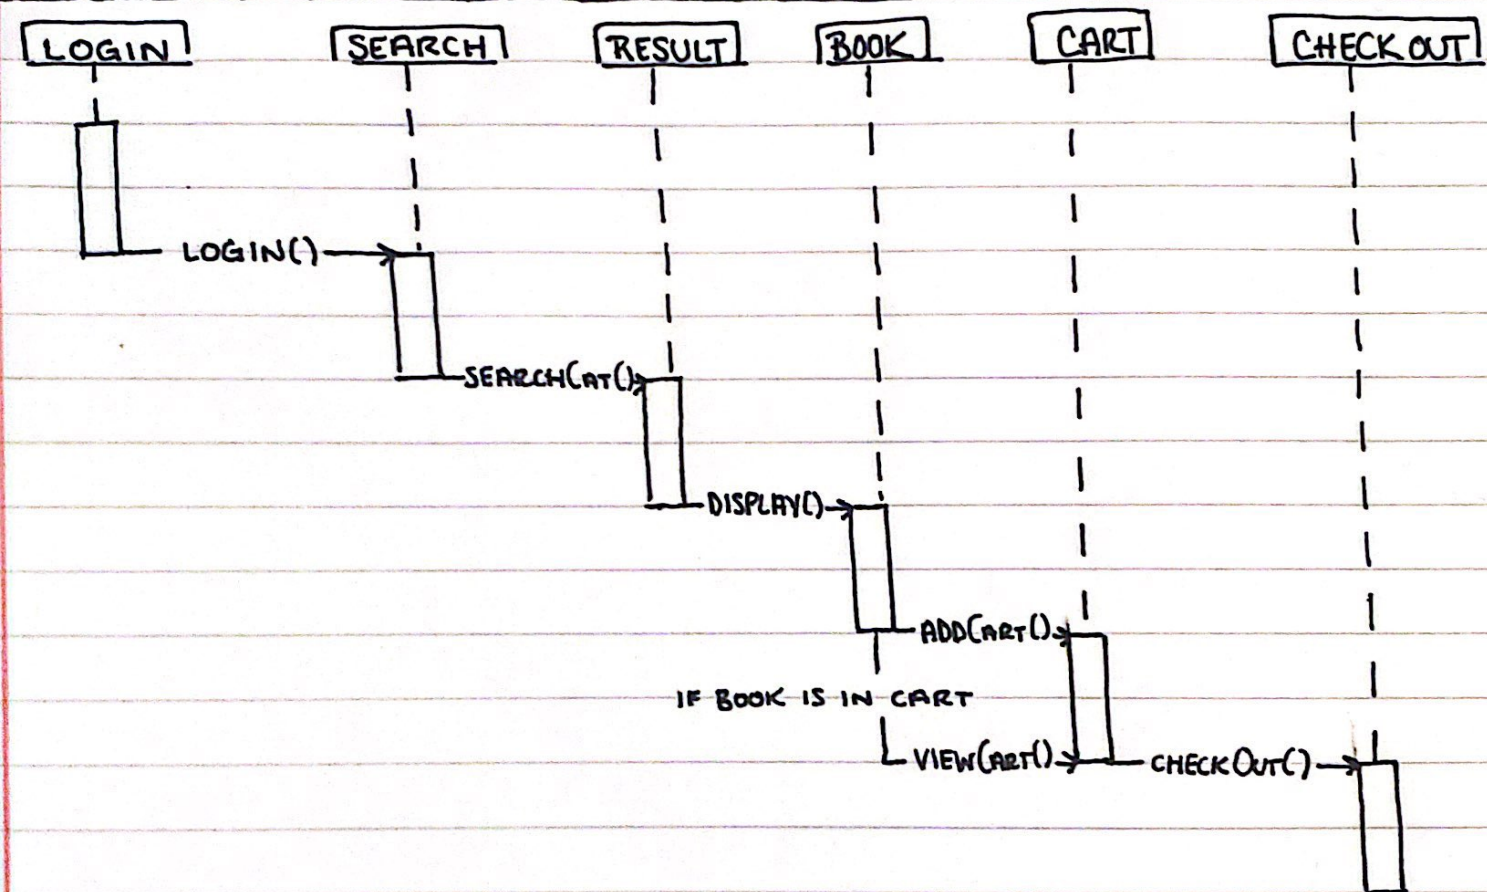 LOGIN SEARCH RESULT BOOK CART CHECKOUT
LOGIN()
SEARCHCAT()
DISPLAY()
ADDCART()
IF BOOK IS IN CART
VIEWCART() CHECKOUT()